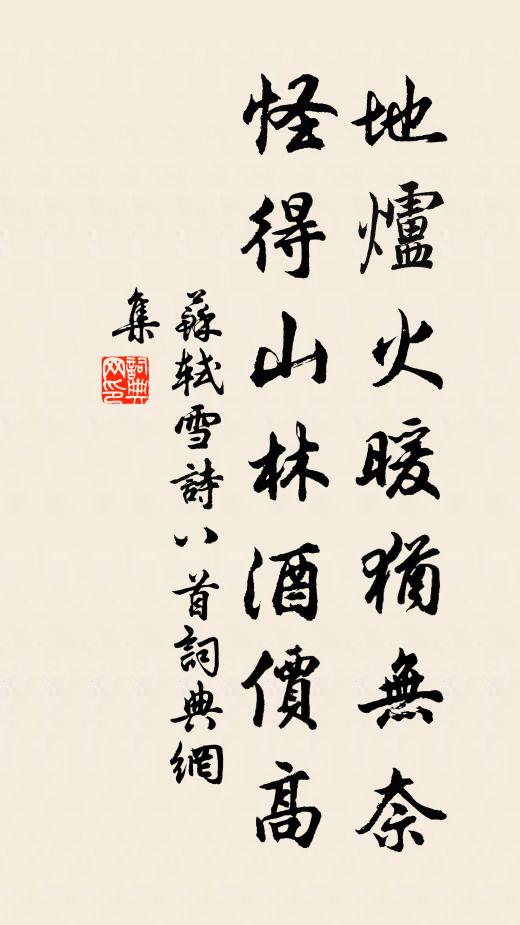 地爐火暖猶無奈
怪得山林酒價高
蘇軾雪詩八首詞典網
集
詞典
网印